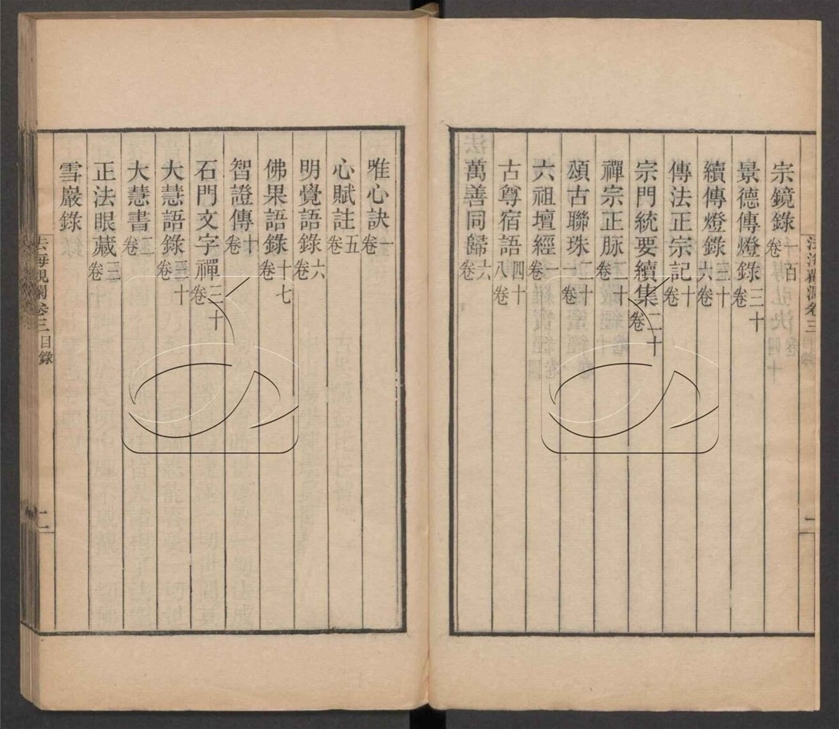 宗鏡錄一百卷
景德傳燈錄三十卷
續傳燈錄三十六卷
傳法正宗記十卷
宗門統要續集二十卷
禪宗正脉二十卷
頌古聯珠二十一卷
六祖壇經一卷
古尊宿語四十八卷
萬善同歸六卷
唯心訣一卷
心賦註五卷
明覺語錄六卷
佛果語錄十七卷
智證傳十卷
石門文字禪三十卷
大慧語錄三十卷
大慧書二卷
正法眼藏三卷
雪巖錄
法海觀瀾卷三目錄 二